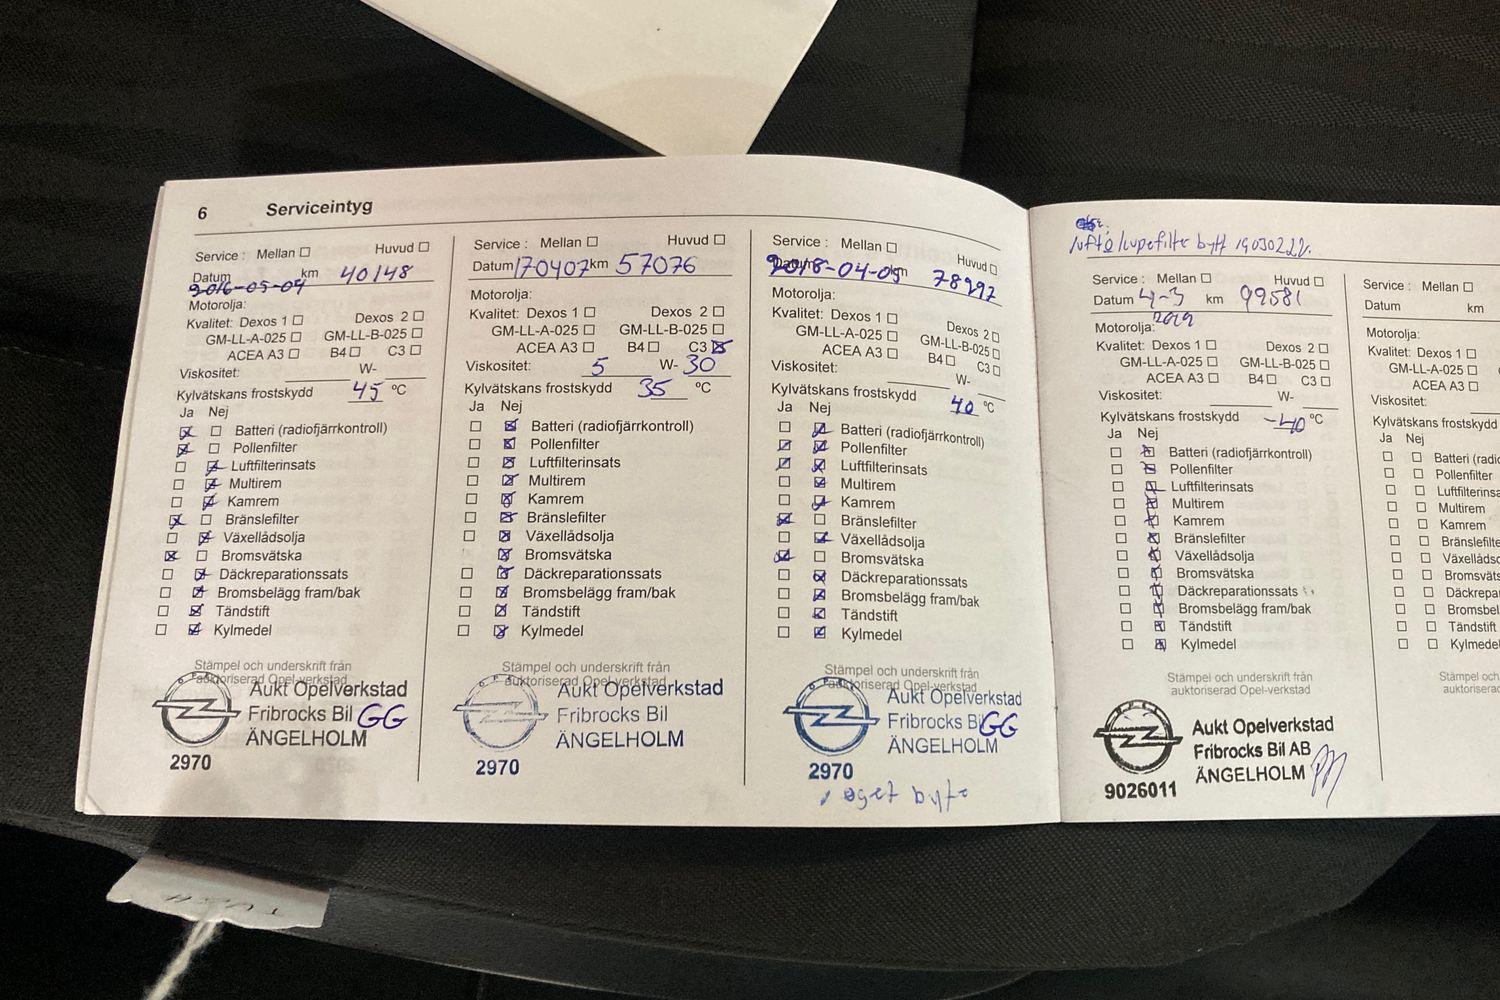 6 Serviceintyg
Service : Mellan ☐ Huvud ☐
Datum 2016-05-04 km 40148
Motorolja:
Kvalitet: Dexos 1 ☐ Dexos 2 ☐
GM-LL-A-025 ☐ GM-LL-B-025 ☐
ACEA A3 ☐ B4 ☐ C3 ☐
Viskositet: W-
Kylvätskans frostskydd 45 °C
Ja Nej
☒ ☐ Batteri (radiofjärrkontroll)
☒ ☐ Pollenfilter
☐ ☒ Luftfilterinsats
☐ ☒ Multirem
☐ ☒ Kamrem
☒ ☐ Bränslefilter
☐ ☒ Växellådsolja
☒ ☐ Bromsvätska
☐ ☒ Däckreparationssats
☐ ☒ Bromsbelägg fram/bak
☐ ☒ Tändstift
☐ ☒ Kylmedel
Stämpel och underskrift från
auktoriserad Opel-verkstad
OPEL
Aukt Opelverkstad
Fribrocks Bil GG
ÄNGELHOLM
2970
Service : Mellan ☐ Huvud ☐
Datum 170407 km 57076
Motorolja:
Kvalitet: Dexos 1 ☐ Dexos 2 ☐
GM-LL-A-025 ☐ GM-LL-B-025 ☐
ACEA A3 ☐ B4 ☐ C3 ☒
Viskositet: 5 W- 30
Kylvätskans frostskydd 35 °C
Ja Nej
☐ ☒ Batteri (radiofjärrkontroll)
☐ ☒ Pollenfilter
☐ ☒ Luftfilterinsats
☐ ☒ Multirem
☐ ☒ Kamrem
☐ ☒ Bränslefilter
☐ ☒ Växellådsolja
☒ Bromsvätska
☐ ☒ Däckreparationssats
☐ ☒ Bromsbelägg fram/bak
☐ ☒ Tändstift
☐ ☒ Kylmedel
Stämpel och underskrift från
auktoriserad Opel-verkstad
OPEL
Aukt Opelverkstad
Fribrocks Bil
ÄNGELHOLM
2970
Service : Mellan ☐ Huvud ☐
Datum 2018-04-05 km 78997
Motorolja:
Kvalitet: Dexos 1 ☐ Dexos 2 ☐
GM-LL-A-025 ☐ GM-LL-B-025 ☐
ACEA A3 ☐ B4 ☐ C3 ☐
Viskositet: W-
Kylvätskans frostskydd 40 °C
Ja Nej
☐ ☒ Batteri (radiofjärrkontroll)
☒ ☒ Pollenfilter
☒ ☒ Luftfilterinsats
☐ ☒ Multirem
☐ ☒ Kamrem
☒ ☐ Bränslefilter
☐ ☒ Växellådsolja
☒ ☐ Bromsvätska
☐ ☒ Däckreparationssats
☐ ☒ Bromsbelägg fram/bak
☐ ☒ Tändstift
☐ ☒ Kylmedel
Stämpel och underskrift från
auktoriserad Opel-verkstad
OPEL
Aukt Opelverkstad
Fribrocks Bil GG
ÄNGELHOLM
2970
eget byte
bytt
Service : Mellan ☐ Huvud ☐
Datum 4-3 2019 km 99581
Motorolja:
Kvalitet: Dexos 1 ☐ Dexos 2 ☐
GM-LL-A-025 ☐ GM-LL-B-025 ☐
ACEA A3 ☐ B4 ☐ C3 ☐
Viskositet: W-
Kylvätskans frostskydd -40 °C
Ja Nej
☐ ☒ Batteri (radiofjärrkontroll)
☐ ☒ Pollenfilter
☐ ☒ Luftfilterinsats
☐ ☒ Multirem
☐ ☒ Kamrem
☐ ☒ Bränslefilter
☐ ☒ Växellådsolja
☐ ☒ Bromsvätska
☐ ☒ Däckreparationssats
☐ ☒ Bromsbelägg fram/bak
☐ ☒ Tändstift
☐ ☒ Kylmedel
Stämpel och underskrift från
auktoriserad Opel-verkstad
OPEL
Aukt Opelverkstad
Fribrocks Bil AB
ÄNGELHOLM
9026011
Service : Mellan ☐
Datum km
Motorolja:
Kvalitet: Dexos 1 ☐
GM-LL-A-025 ☐
ACEA A3 ☐
Viskositet:
Kylvätskans frostskydd
Ja Nej
☐ ☐ Batteri (radio
☐ ☐ Pollenfilter
☐ ☐ Luftfilterinsa
☐ ☐ Multirem
☐ ☐ Kamrem
☐ ☐ Bränslefilte
☐ ☐ Växellåds
☐ ☐ Bromsväts
☐ ☐ Däckrepa
☐ ☐ Bromsbel
☐ ☐ Tändstift
☐ ☐ Kylmede
Stämpel oc
auktoriserad